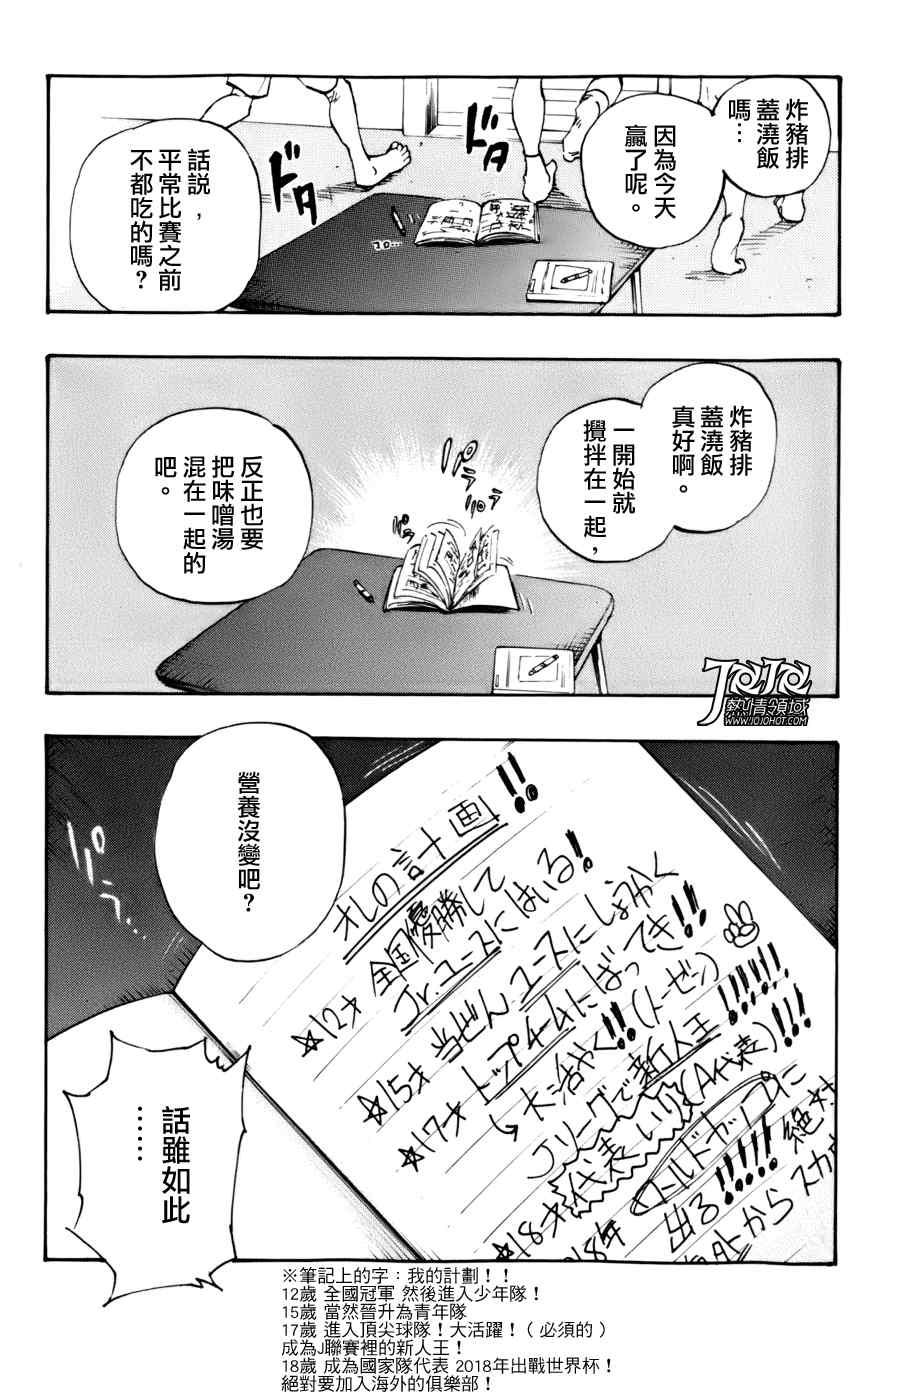 炸豬排
蓋澆飯
嗎…
因為今天
贏了呢。
ドタ
ドタ
話説，
平常比賽之前
不都吃的嗎？
炸豬排
蓋澆飯
真好啊。
一開始就
攪拌在一起，
パラ
パラ
反正也要
把味噌湯
混在一起的
吧。
JOJO
熱情領域
WWW.JOJOHOT.COM
營養沒變吧？
パラ
オレの計画!!
☆12才 全国優勝して
Jr.ユースにはいる!
☆15才 当ぜんユースにしょうかく
☆17才 トップチームにばってき!!
→大活やく!!(トーゼン)
Jリーグで新人王!!!!!!
☆18才代表いり(A代表)!!!
18年 ワールドカップに
出る!!!!! 絶対
からスカウ
話雖如此
……
※筆記上的字：我的計劃！！
12歲 全國冠軍 然後進入少年隊！
15歲 當然晉升為青年隊
17歲 進入頂尖球隊！大活躍！（ 必須的 ）
成為J聯賽裡的新人王！
18歲 成為國家隊代表 2018年出戰世界杯！
絕對要加入海外的俱樂部！